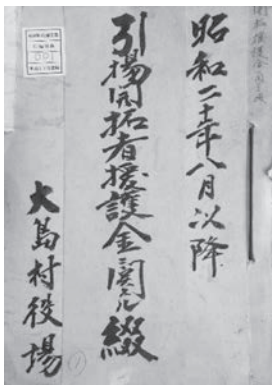 昭和二十一年八月以降
引揚開拓者援護金ニ関スル綴
大島村役場
001
①